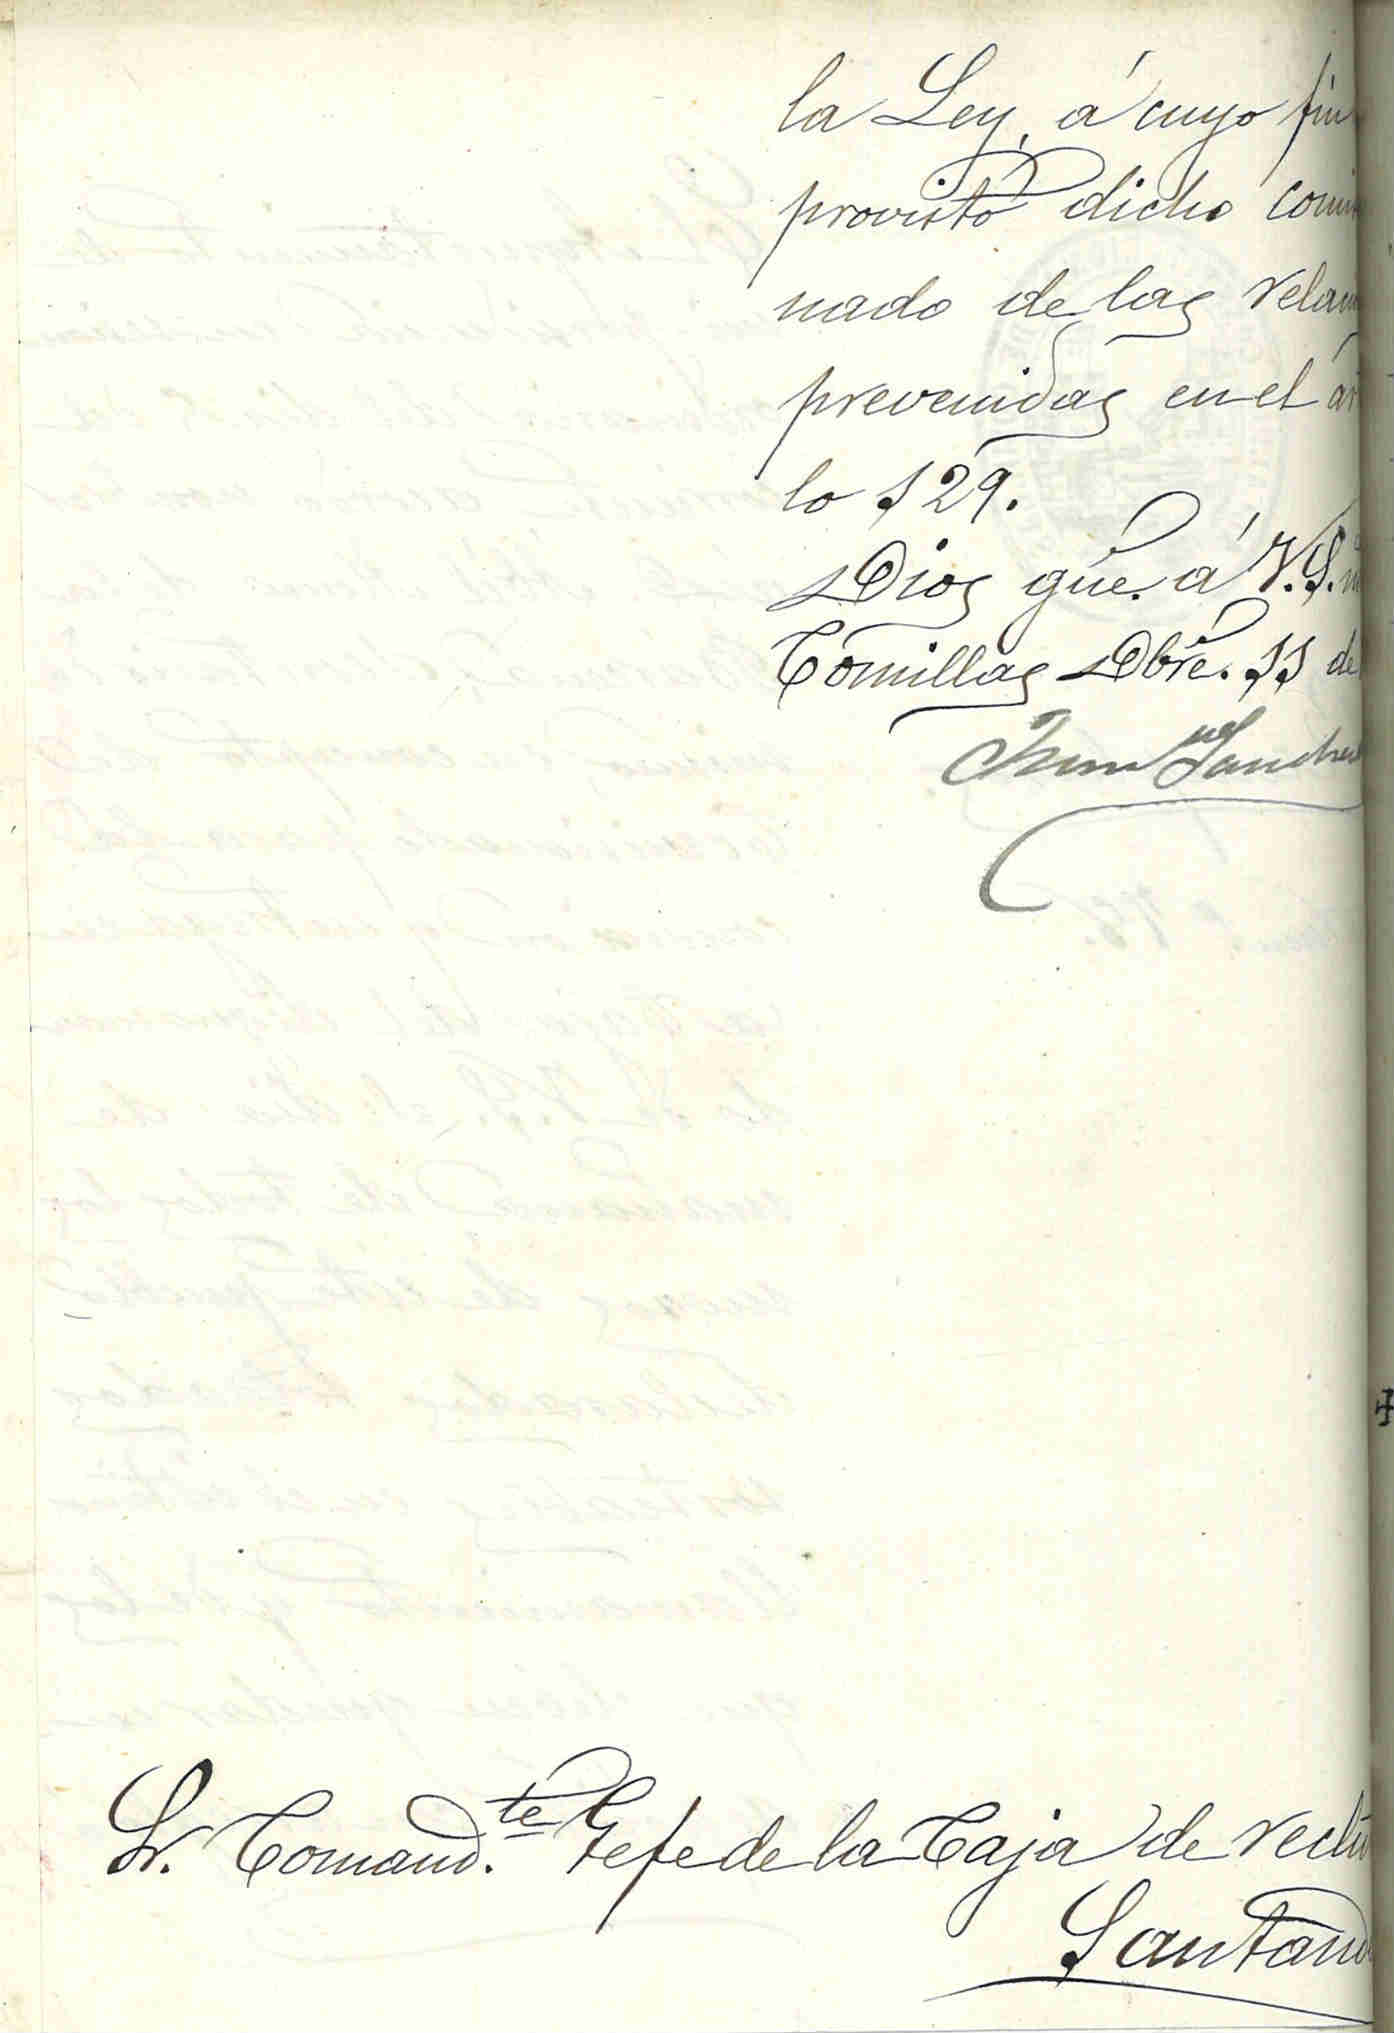 la Ley, á cuyo fin
provisto dicho comi
nado de las relaci
prevenidas en el ar
lo 129.
Dios gue. á V.S. m
Comillas Dbre. 11 de
Sanchez
Sr. Comand.te Gefe de la Caja de reclu
Santand